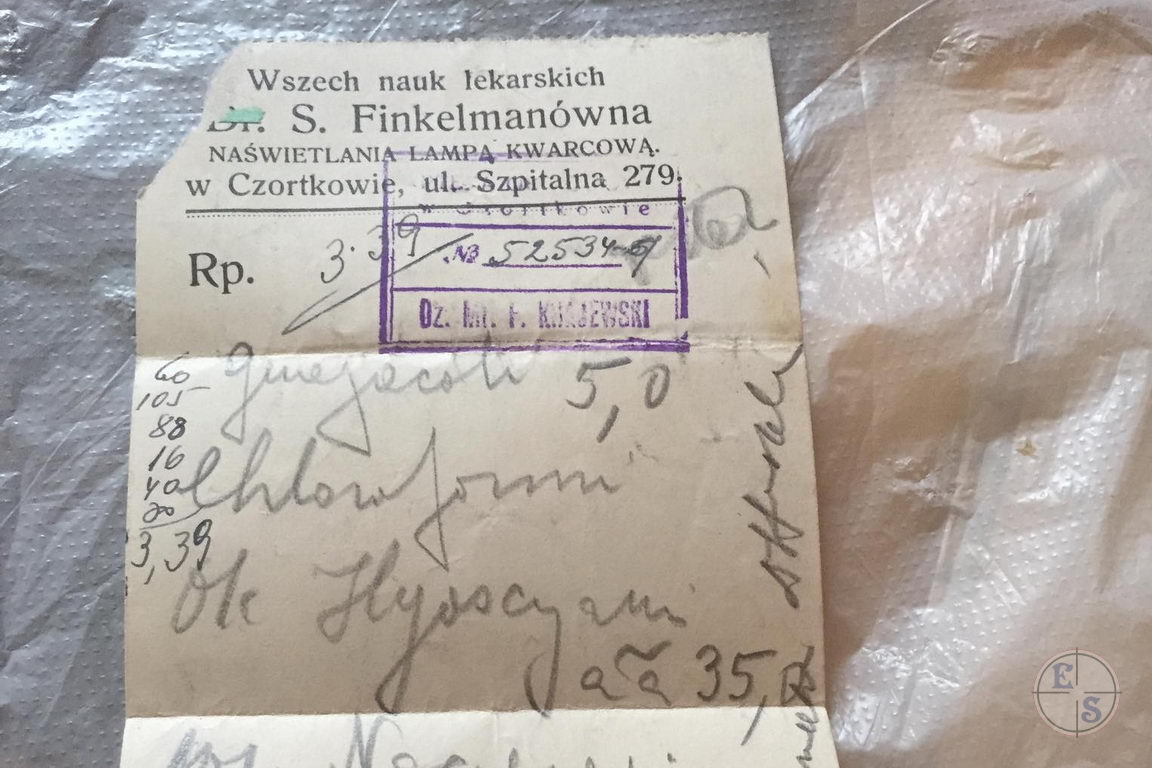 Wszech nauk lekarskich
Dr. S. Finkelmanówna
NAŚWIETLANIA LAMPĄ KWARCOWĄ.
w Czortkowie, ul. Szpitalna 279.
w Czortkowie
Rp.
3.39
№ 52534
Dz. Mr. F. KRAJEWSKI
60
105
88
16
40
20
3,39
Guajacoli 5,0
Chloroformi
Ol. Hyoscyami
aa 35,
E S